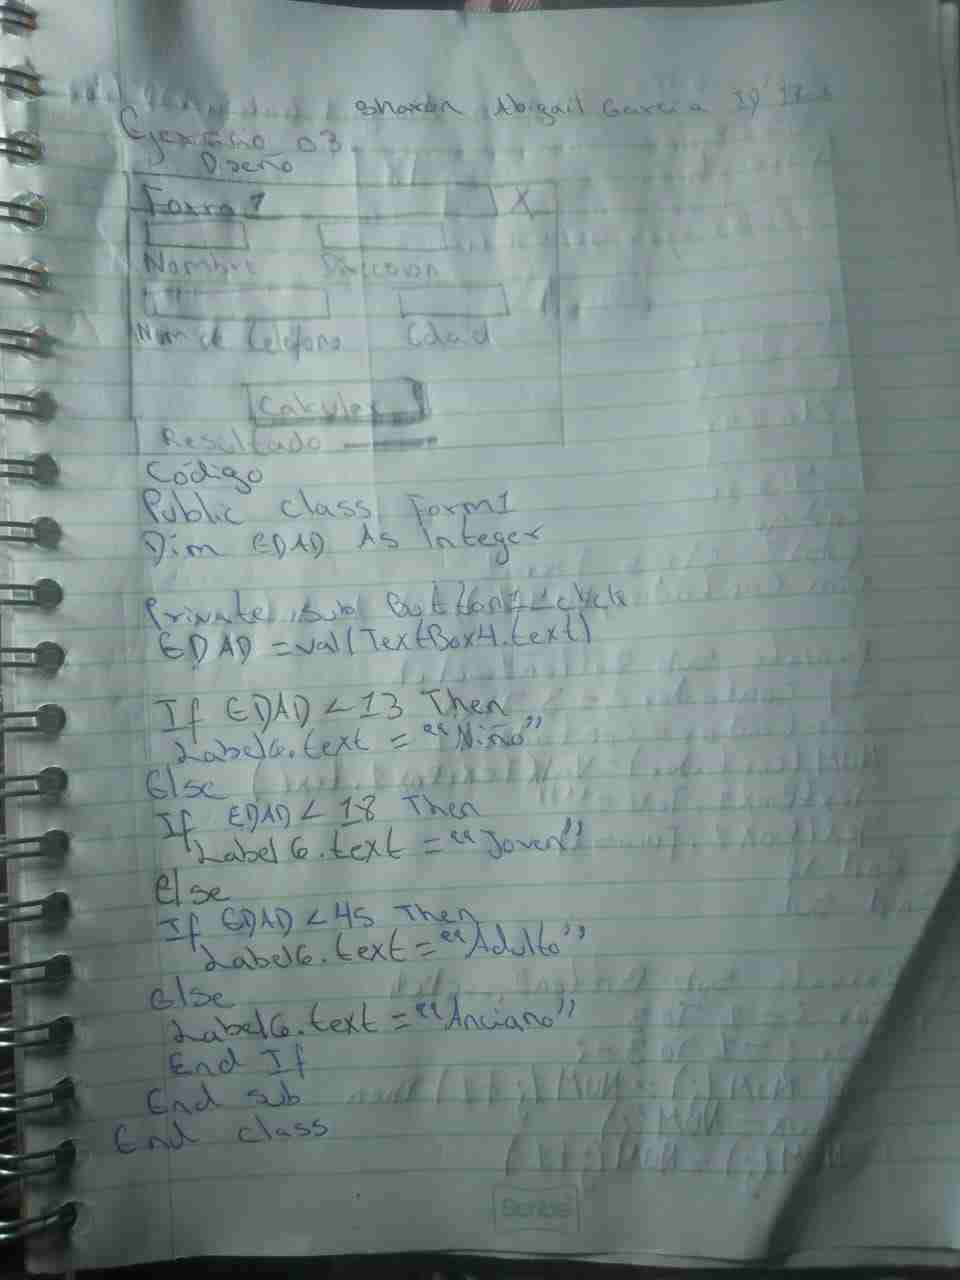 Sharon Abigail Garcia
Ejercicio 03
Diseño
Form 1 X
Nombre Direccion
Num de telefono Edad
Calculer
Resultado
Código
Public class Form1
Dim EDAD As Integer
Private sub Button1_click
EDAD = val(TextBox4.text)
If EDAD < 13 Then
Label6.text = "Niño"
Else
If EDAD < 18 Then
Label6.text = "Joven"
Else
If EDAD < 45 Then
Label6.text = "Adulto"
Else
Label6.text = "Anciano"
End If
End sub
End class
Scribe